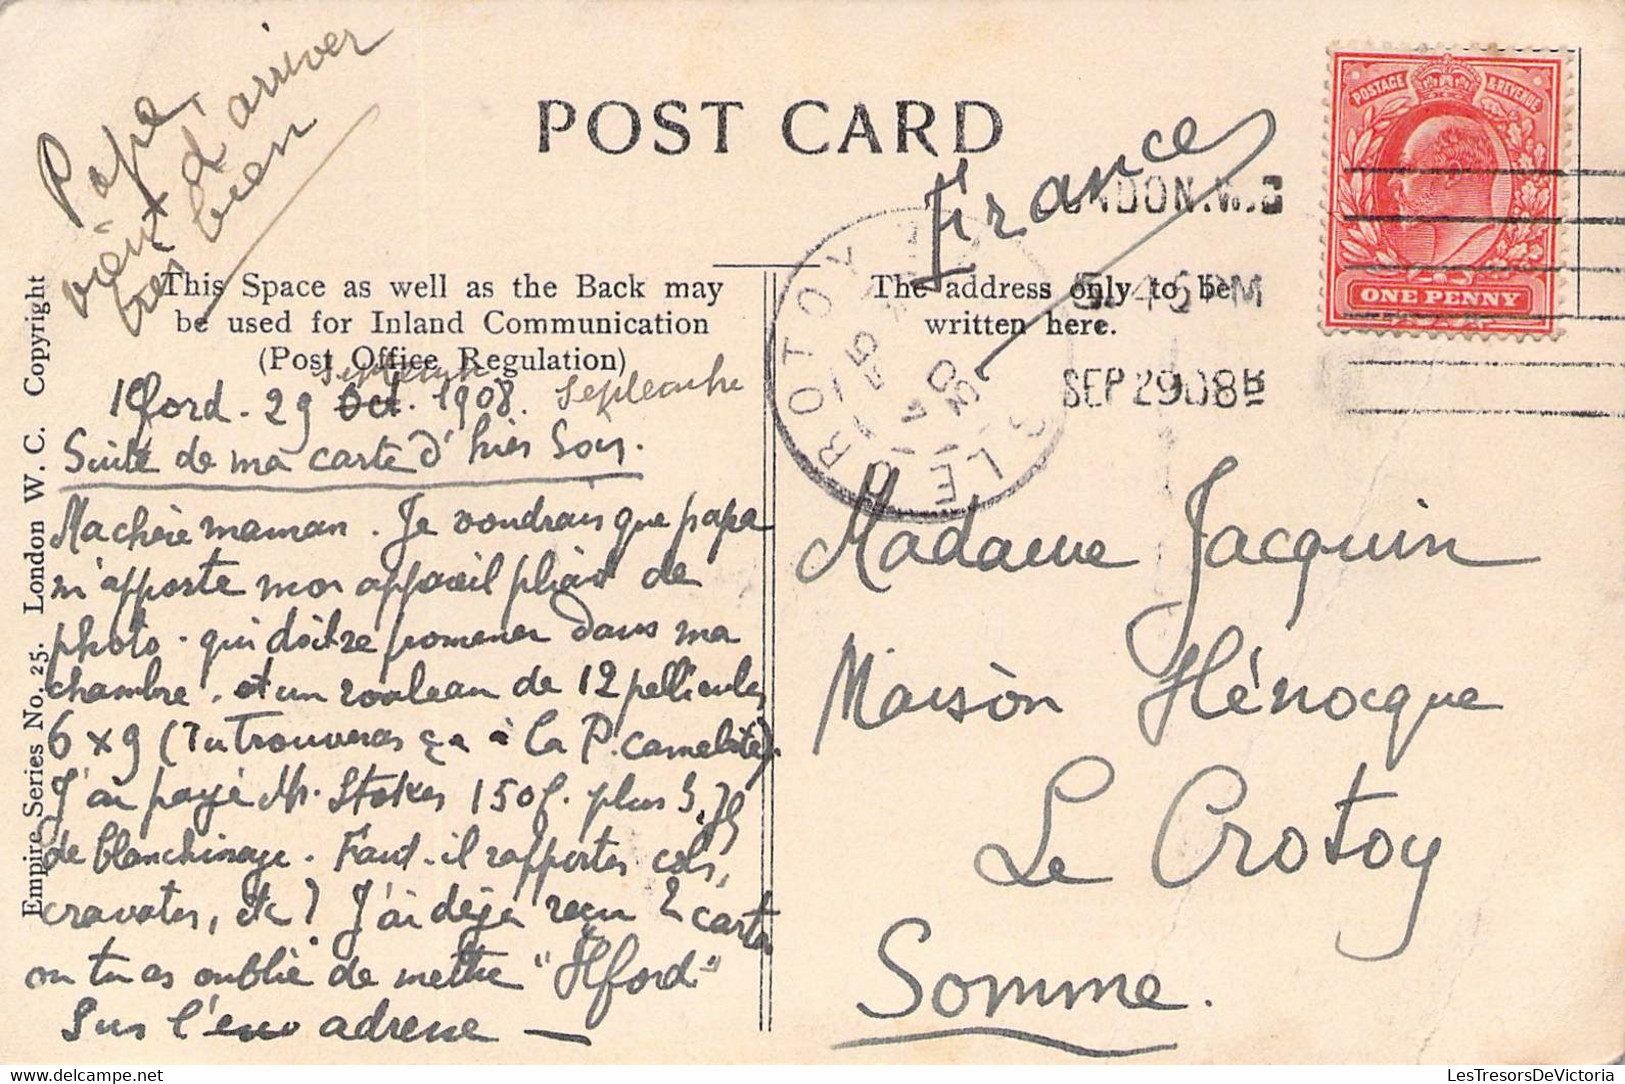 Papa
vient d'arriver
très bien
POST CARD
France
LONDON.W.C
5.45 PM
SEP 29 08 B
POSTAGE & REVENUE
ONE PENNY
LE CROTOY
This Space as well as the Back may
be used for Inland Communication
(Post Office Regulation)
The address only to be
written here.
Empire Series No. 25. London W. C. Copyright
septembre
Ilford. 29 Oct. 1908. septembre
Suite de ma carte d'hier soir.
Ma chère maman. Je voudrais que papa
m'apporte mon appareil pliant de
photo. qui doit se promener dans ma
chambre. et un rouleau de 12 pellicules
6 x 9 (Tu trouveras ça à la P. camelote).
J'ai payé Mr. Stokes 150f. plus 3,75
de blanchissage. Faut-il rapporter cols,
cravates, etc? J'ai déjà reçu 2 cartes
où tu as oublié de mettre "Ilford"
sur l' adresse —
Madame Jacquin
Maison Hénocque
Le Crotoy
Somme.
LesTresorsDeVictoria